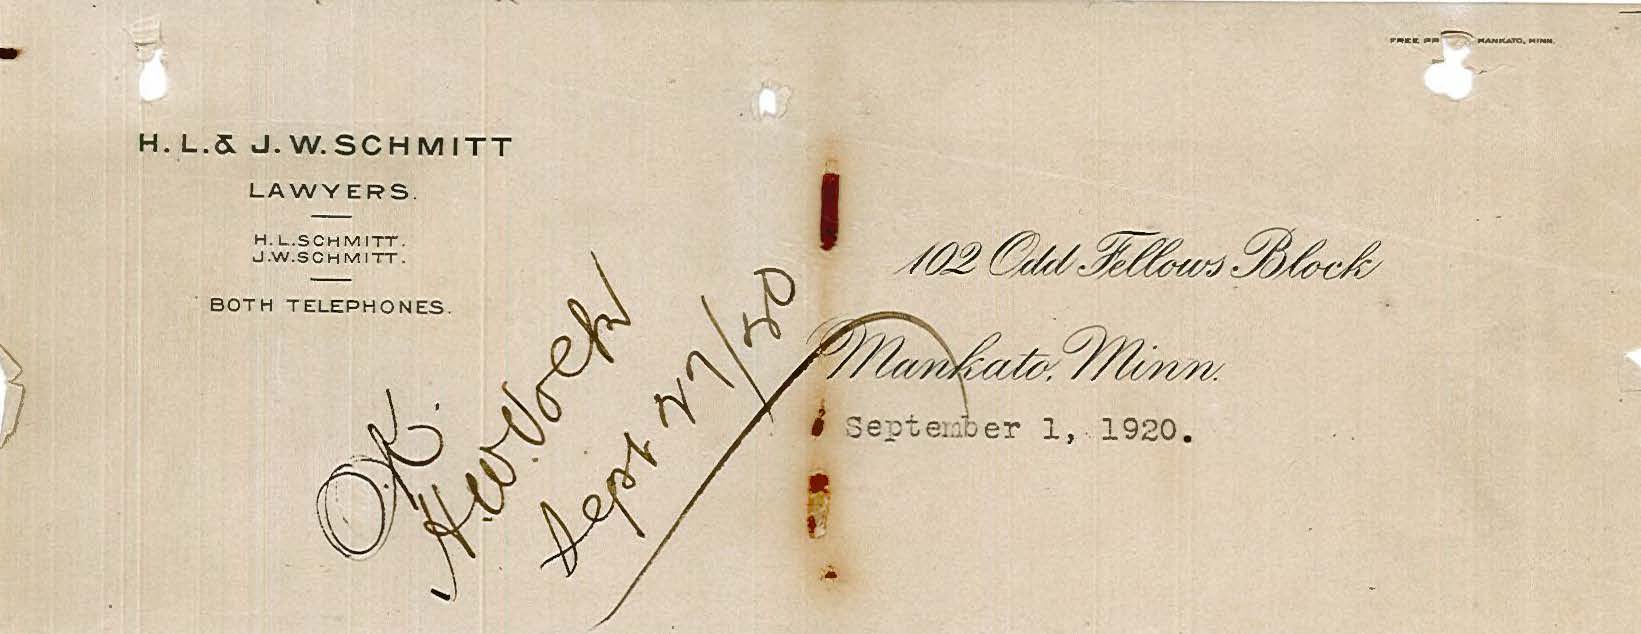 FREE PR MANKATO, MINN.
H. L. & J. W. SCHMITT
LAWYERS.
H. L. SCHMITT.
J. W. SCHMITT.
BOTH TELEPHONES.
102 Odd Fellows Block
Mankato, Minn.
September 1, 1920.
O.K.
H.W. Volk
Sept 27/20